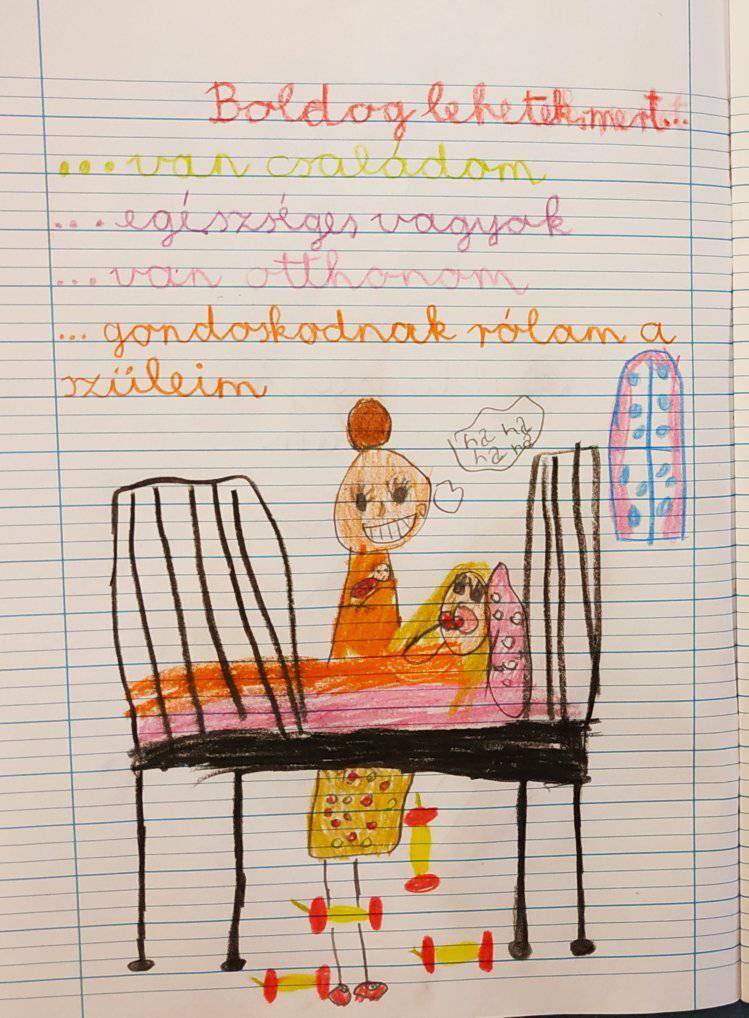 Boldog lehetek, mert...
...van családom
...egészséges vagyok
...van otthonom
...gondoskodnak rólam a
szüleim
ha ha
ha ha